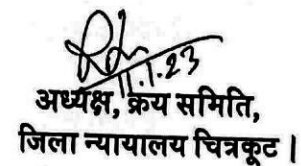 11.1.23
अध्यक्ष, क्रय समिति,
जिला न्यायालय चित्रकूट।